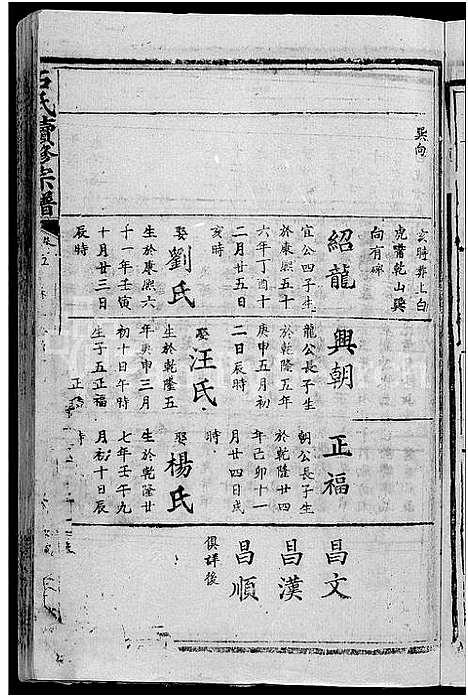 石氏續修宗譜
巽向
亥時葬上白
虎嘴乾山巽
向有碑
紹龍
宜公四子生
於康熙五十
六年丁酉十
二月廿五日
亥時
娶劉氏
生於康熙六
十一年壬寅
十月廿三日
辰時
興朝
龍公長子生
於乾隆五年
庚申五月初
二日辰時
娶汪氏
生於乾隆五
年庚申三月
初十日午時
生子五正福
正
正福
朝公長子生
於乾隆廿四
年己卯十一
月廿四日戌
時
娶楊氏
生於乾隆廿
七年壬午九
月初十日辰
時
昌文
昌漢
昌順
俱詳後